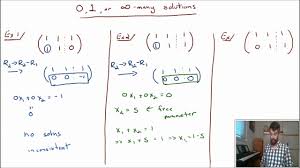 0, 1, or ∞-many solutions
Ex 1/
( 1 1 | 1 )
( 1 1 | 0 )
R₂→R₂-R₁
( 1 1 | 1 )
( 0 0 | -1 )
0x₁+0x₂ = -1
0
no solns
inconsistent
Ex 2/
( 1 1 | 1 )
( 1 1 | 1 )
R₂→R₂-R₁
( 1 1 | 1 )
( 0 0 | 0 )
0x₁+0x₂=0
x₂ = s ← free
parameter
x₁+x₂ = 1
⇒ x₁+s = 1 ⇒ x₁=1-s
Ex/
( 1 1 | 1 )
( 0 1 | 1 )